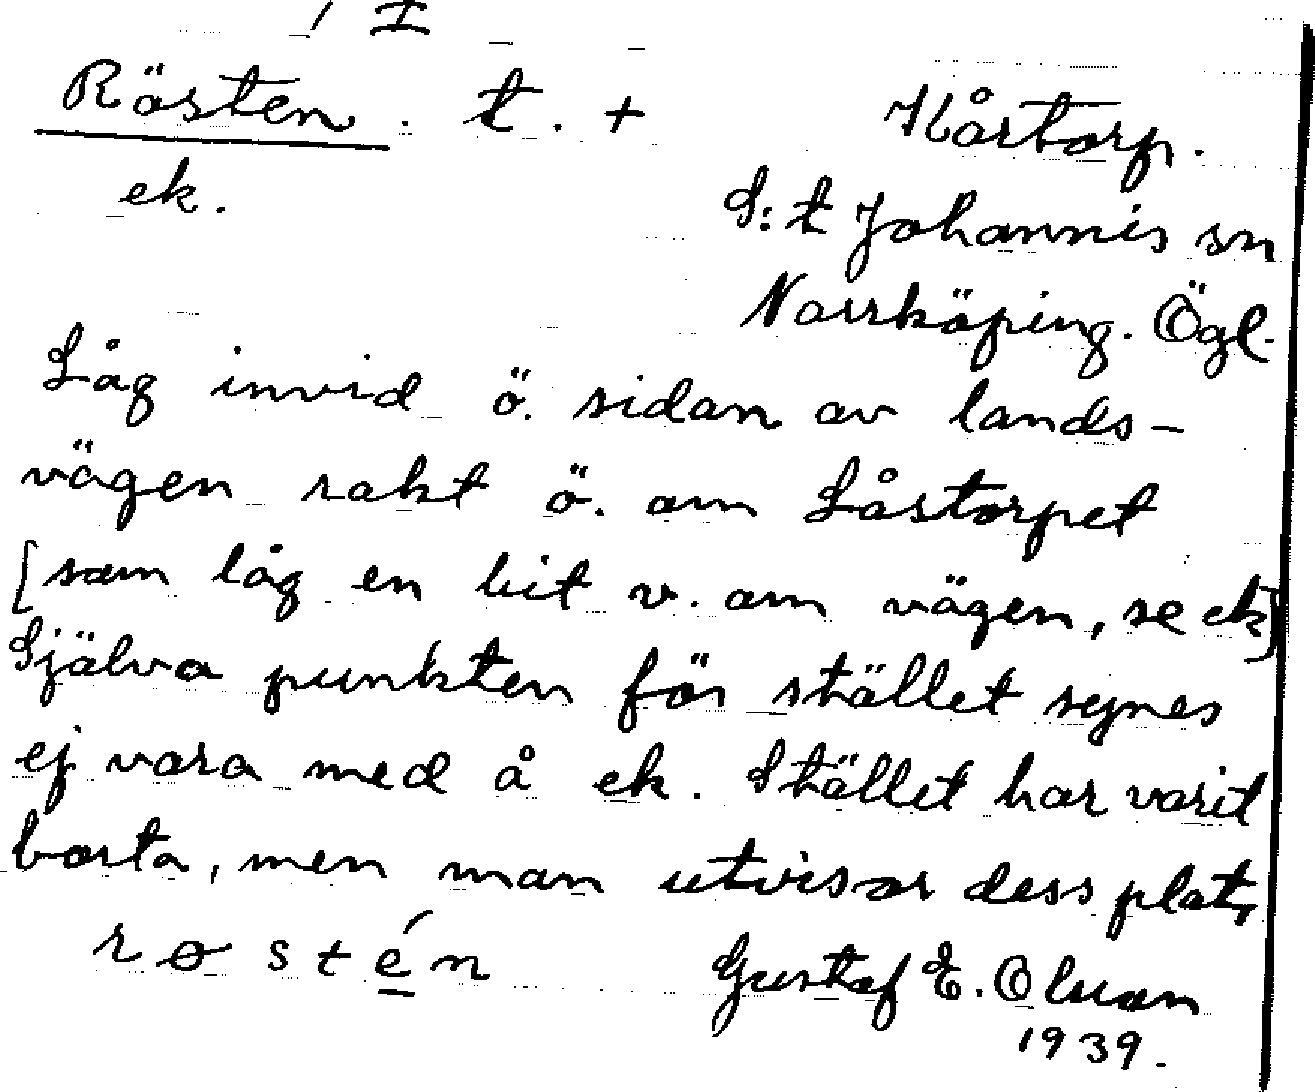 / I
Rösten. t. + Kårtorp.
ek. S:t Johannis sn
Norrköping. Ögl.
Låg invid ö. sidan av lands-
vägen rakt ö. om Låstorpet
[som låg en bit v. om vägen, se ek]
Själva punkten för stället synes
ej vara med å ek. Stället har varit
borta, men man utvisar dess plats
røstén Gustaf E. Olsson
1939.